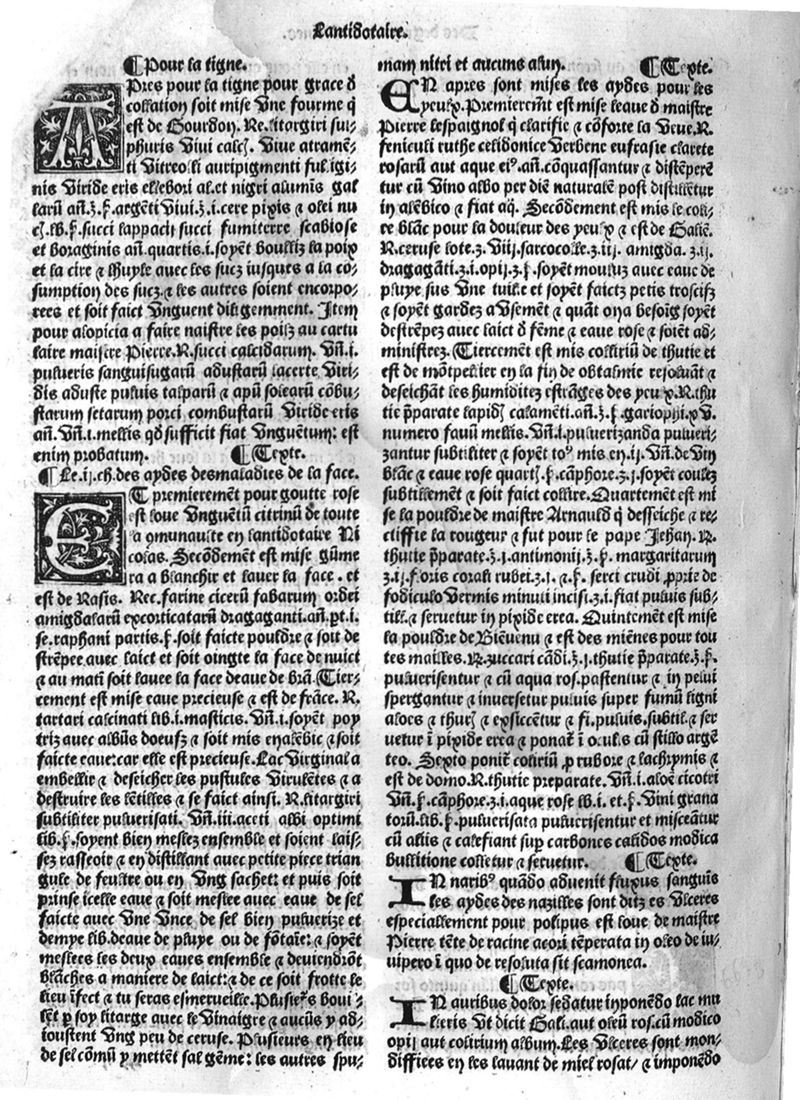 Lantidotaire.
¶Pour la tigne.
APres pour la tigne pour grace d̄
collation soit mise Vne fourme q̄
est de Gourdoɲ. Re. litargiri sul⸗
phuris Viui calcɧ. Viue atramē⸗
ti Vitreoli auripigmenti fuligi⸗
nis Viride eris ellebori al. et nigri alumīs gal
larū añ.ʒ.ꝭ. argēti Viui.ʒ.i. cere pixis ⁊ olei nu
cɧ. lb.ꝭ. succi lappacɧ succi fumiterre scabiose
et boraginis añ. quartis.i. soyēt boulliz la poix
et la cire ⁊ lhuyle auec les sucz iusques a la cō⸗
sumption des sucz. ⁊ les autres soient encorpo⸗
rees et soit faict Vnguent diligemment. Item
pour alopicia a faire naistre les poilz au cartu
laire maistre Pierre. R. succi calcidarum. Vñ.i.
pulueris sanguisugarū adustarū lacerte Viri⸗
dis aduste puluis talparū ⁊ apū solearū cōbu⸗
starum setarum porci combustarū Viride eris
añ. Vñ.i. mellis qd̄ sufficit fiat Vnguētum: est
enim probatum. ¶Texte.
¶Le.ij.ch. des aydes desmaladies de la face.
ET premierement pour goutte rose
est loue Vnguētū citrinū de toute
la cōmunaulte en lantidotaire Ni
colas. Secōdement est mise gūme
ra a blanchir et lauer la face. et
est de Rasis. Rec. farine cicerū fabarum ordei
amigdalarū excorticatarū draganti. añ. p̄t.i.
se. raphani partis.ꝭ. soit faicte pouldre ⁊ soit de
strēpee auec laict et soit oingte la face de nuict
⁊ au matī soit lauee la face deaue de brā. Tier⸗
cement est mise eaue precieuse ⁊ est de frāce. R.
tartari calcinati lib.i. masticis. Vñ.i. soyēt poy
triz auec albūs doeufz ⁊ soit mis enalēbic ⁊ soit
faicte eaue: car elle est precieuse. Lac Virginal a
embellir ⁊ deseicher les pustules Virulētes ⁊ a
destruire les lētilles ⁊ se faict ainsi. R. litargiri
subtiliter puluerisati. Vñ.iii. aceti albi optimi
lib.ꝭ. soyent bien meslez ensemble et soient lais⸗
sez rasseoir ⁊ en distillant auec petite piece trian
gule de feultre ou en Vng sachet: et puis soit
prinse icelle eaue ⁊ soit meslee auec eaue de sel
faicte auec Vne Vnce de sel bien puluerize et
demye lib. deaue de pluye ou de fōtaīe: ⁊ soyēt
meslees les deux eaues ensemble ⁊ deuiendrōt
blāches a maniere de laict: ⁊ de ce soit frotte le
lieu īfect ⁊ tu seras esmerueille. Plusieᷣs boui⸗
lēt p̄ soy litarge auec le Vinaigre ⁊ aucūs y ad⸗
ioustent Vng peu de ceruse. Plusieurs en lieu
de sel cōmū y mettēt sal gēme: les autres spu⸗
mam nitri et aucuns aluɲ. ¶Texte.
EN apres sont mises les aydes pour les
yeulx. Premieremēt est mise leaue d̄ maistre
Pierre lespaignol q̄ clarifie ⁊ cōforte la Veue. R.
feniculi ruthe celidonice Verbene eufrasie clarete
rosarū aut aque eiꝰ. añ. cōquassantur ⁊ distēperē
tur cū Vino albo per diē naturalē post distillētur
in alēbico ⁊ fiat aq̄. Secōdement est mis le coli⸗
re blāc pour la douleur des yeulx ⁊ est de Galiē.
R. ceruse lote.ʒ. Viij. sarcocolle.ʒ.iij. amigda.ʒ.ij.
dragagāti.ʒ.i. opij.ʒ.ꝭ. soyēt mouluz auec eaue de
pluye sus Vne tuille et soyēt faictz petis troscisz
⁊ soyēt gardez a Vsement ⁊ quāt oɲ a besoīg soyēt
destrēpez auec laict d̄ fēme ⁊ eaue rose ⁊ soiēt ad⸗
ministrez. Tiercement est mis colliriū de thutie et
est de mōtpelier en la fin de obtalmie resoluāt ⁊
deseichāt les humiditez estrāges des yeulx. R. thu
tie p̄parate lapidɧ calamēti. añ.ʒ.ꝭ. gariophi.xV.
numero fauū mellis. Vñ.i. puluerizanda pulueri⸗
zantur subtiliter ⁊ soyēt toꝰ mis en.ij. Vñ. de Vin
blāc ⁊ eaue rose quartɧ.ꝭ. cāphore.ʒ.j. soyēt coulez
subtillemēt ⁊ soit faict collire. Quartemēt est mi
se la pouldre de maistre Arnauld q̄ desseiche ⁊ re⸗
ctiffie la rougeur ⁊ fut pour le pape Jehan. R.
thutie p̄parate.ʒ.j. antimonij.ʒ.ꝭ. margaritarum
ʒ.ij. floris corali rubei.ʒ.j. ⁊.ꝭ. serci crudi p̄prie de
fodiculo Vermis minuti incisi.ʒ.i. fiat puluis sub⸗
till. ⁊ seruetur in pixide erea. Quintemēt est mise
la pouldre de Biēuenu ⁊ est des miēnes pour tou
tes mailles. R. zuccari cādi.ʒ.j. thutie p̄parate.ʒ.ꝭ.
puluerisentur ⁊ cū aqua ros. pastentur ⁊ in pelui
spergantur ⁊ inuersetur puluis super fumū ligni
aloes ⁊ thurɧ ⁊ exsiccētur ⁊ fi. puluis. subtil. ⁊ ser
uetur ī pixide erea ⁊ ponat̄ ī oculis cū stillo argē
teo. Sexto ponit̄ coliriū p̄ rubore ⁊ lachrymis ⁊
est de domo. R. thutie preparate. Vñ.i. aloē cicotri
Vñ.ꝭ. cāphore.ʒ.i. aque rose lb.i. et.ꝭ. Vini grana
torū. lib.ꝭ. puluerisata puluerisentur et misceātur
cū aliis ⁊ calefiant sup̄ carbones calidos modica
bullitione colletur ⁊ seruetur. ¶Texte.
IN naribꝰ quādo aduenit fluxus sanguīs
les aydes des nazilles sont ditz es Vlceres
especiallement pour polipus est loue de maistre
Pierre tēte de racine acori tēperata in oleo de iu⸗
uipero ī quo de resoluta sit scamonea.
¶Texte.
IN auribus dolor sedatur inponēdo lac mu
lieris Vt dicit Gali. aut oleū ros. cū modico
opij aut colirium album. Les Vlceres sont mon⸗
diffiees en les lauant de miel rosat/ ⁊ imponēdo